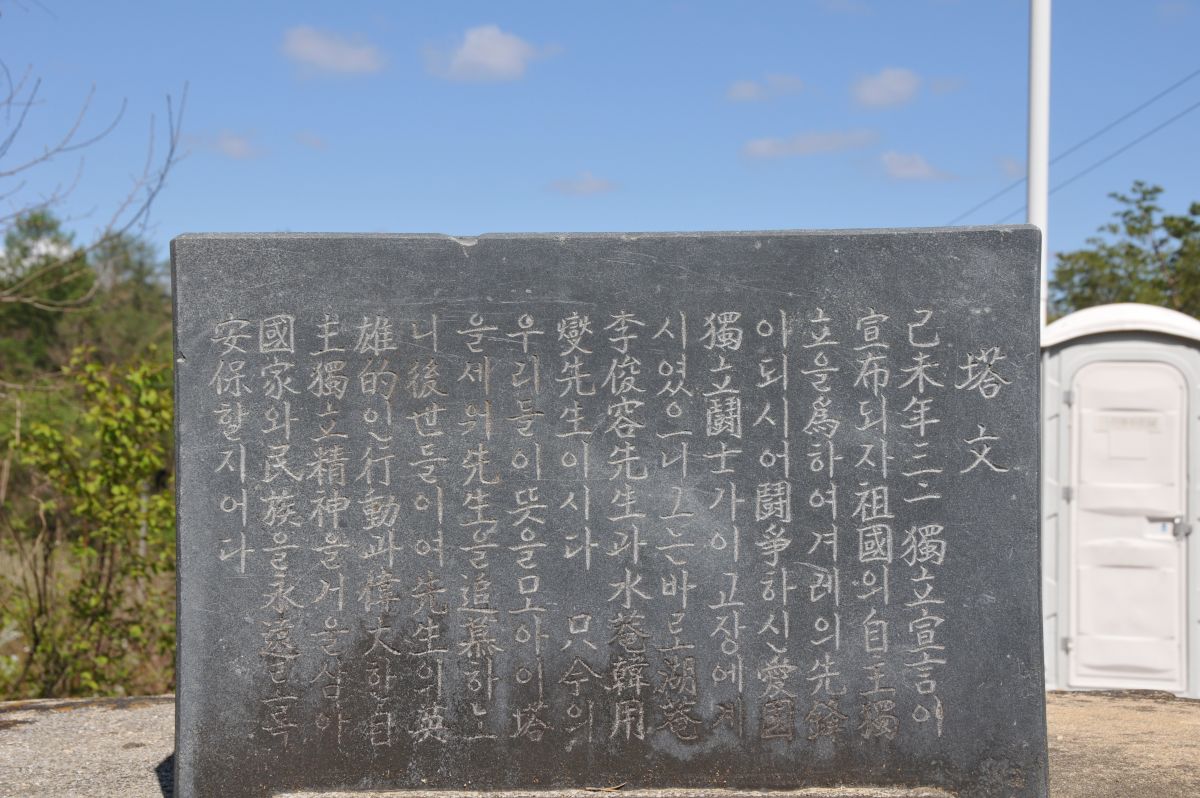 塔文
己未年三二 獨立宣言이
宣布되자 祖國의 自主獨
立을 爲하여 겨레의 先鋒
이 되시어 鬪爭하신 愛國
獨立鬪士가 이 고장에 계
시였으니 그는 바로 湖菴
李俊容先生과 水菴韓用
燮先生이시다 只今의
우리들이 뜻을 모아 이 塔
을 세워 先生을 追慕하노
니 後世들이여 先生의 英
雄的인 行動과 偉大한 自
主獨立精神을 거울삼아
國家와 民族을 永遠토록
安保할지어다